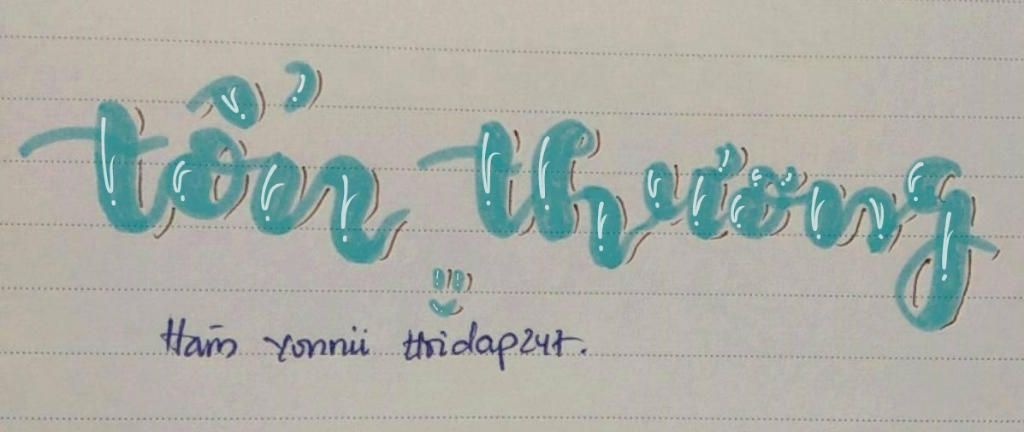 tổn thương
Hain yonnii thidap24t.